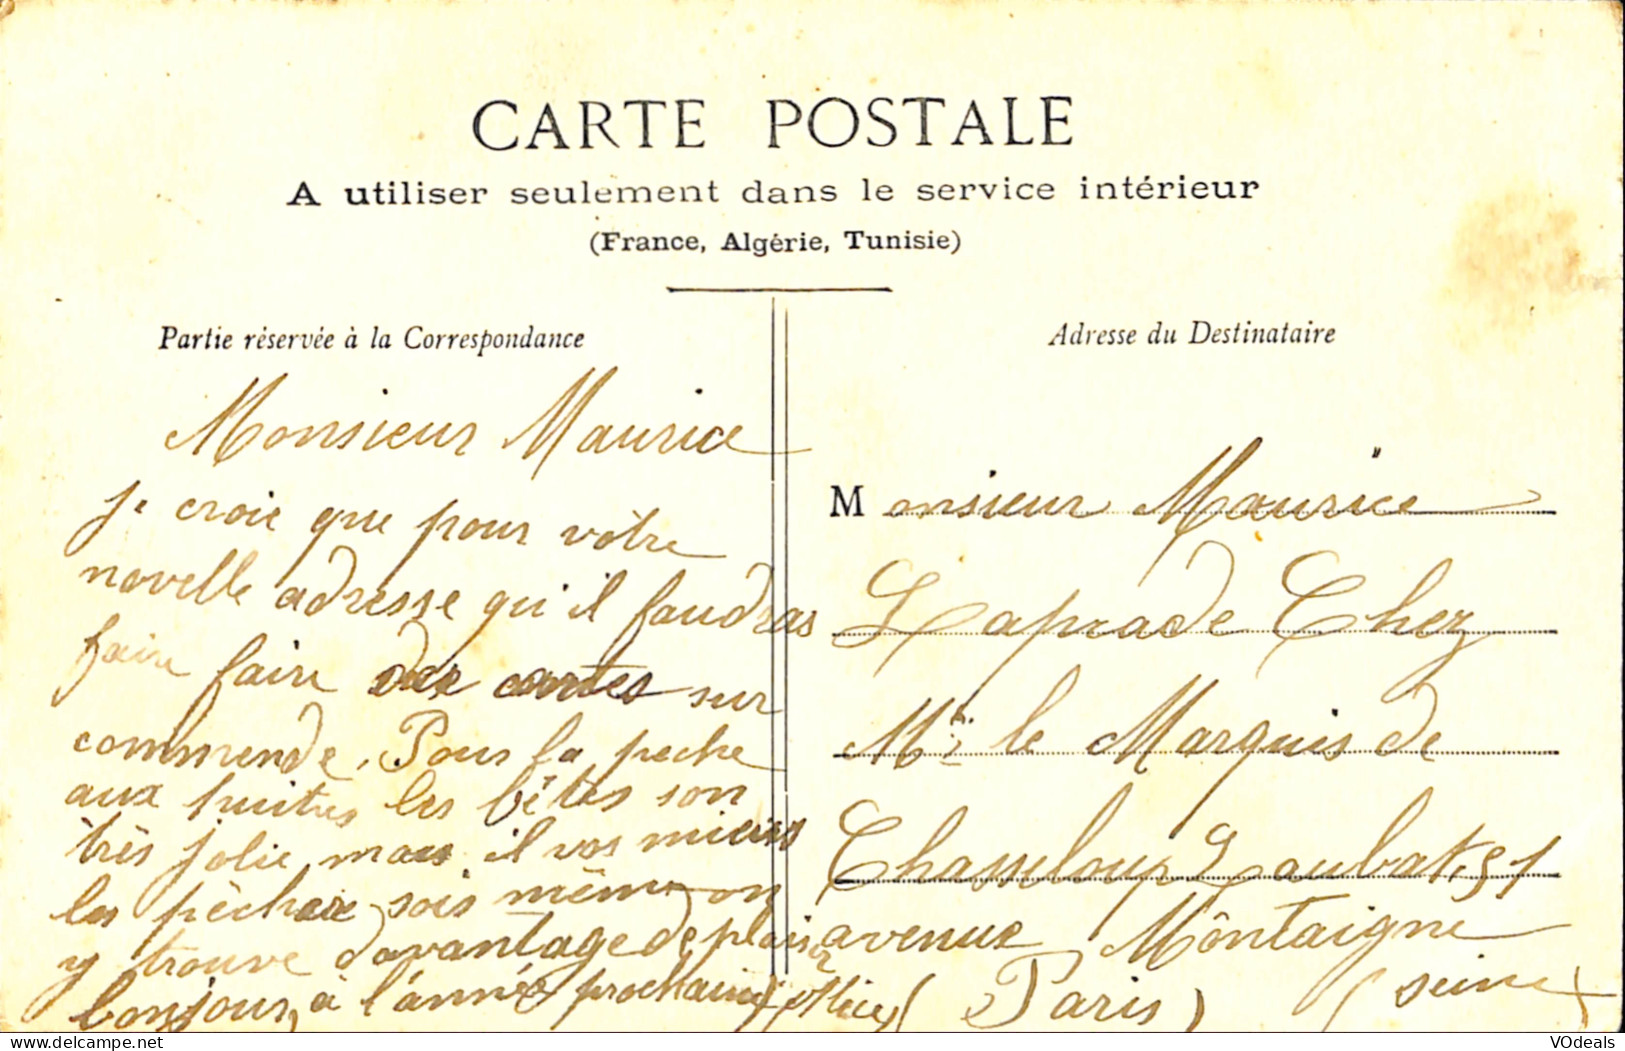 CARTE POSTALE
A utiliser seulement dans le service intérieur
(France, Algérie, Tunisie)
Partie réservée à la Correspondance
Monsieur Maurice
je croie que pour vôtre
novelle adresse qu'il faudras
faire faire des cartes sur
commende. Pour la peche
aux huitres les bêtes son
très jolie mais il vos mieus
les pêcher sois même on
y trouve davantage de plaisir
bonjour, à l'année prochaine
Adresse du Destinataire
Monsieur Maurice
Laprade Chez
Mr le Marquis de
Chasseloup Laubat, 51
avenue Môntaigne
(Paris) (seine)
© VOdeals